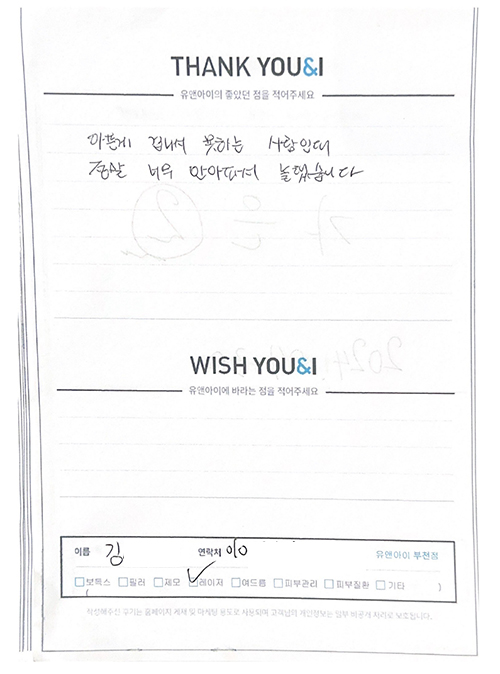 THANK YOU&I
유앤아이의 좋았던 점을 적어주세요
아픈게 겁나서 못하는 사람인데
정말 너무 안아파서 놀랬습니다
WISH YOU&I
유앤아이에 바라는 점을 적어주세요
이름 김 연락처 010 유앤아이 부천점
보톡스 필러 제모 레이저 여드름 피부관리 피부질환 기타
( )
작성해주신 후기는 홈페이지 게재 및 마케팅 용도로 사용되며 고객님의 개인정보는 일부 비공개 처리로 보호됩니다.